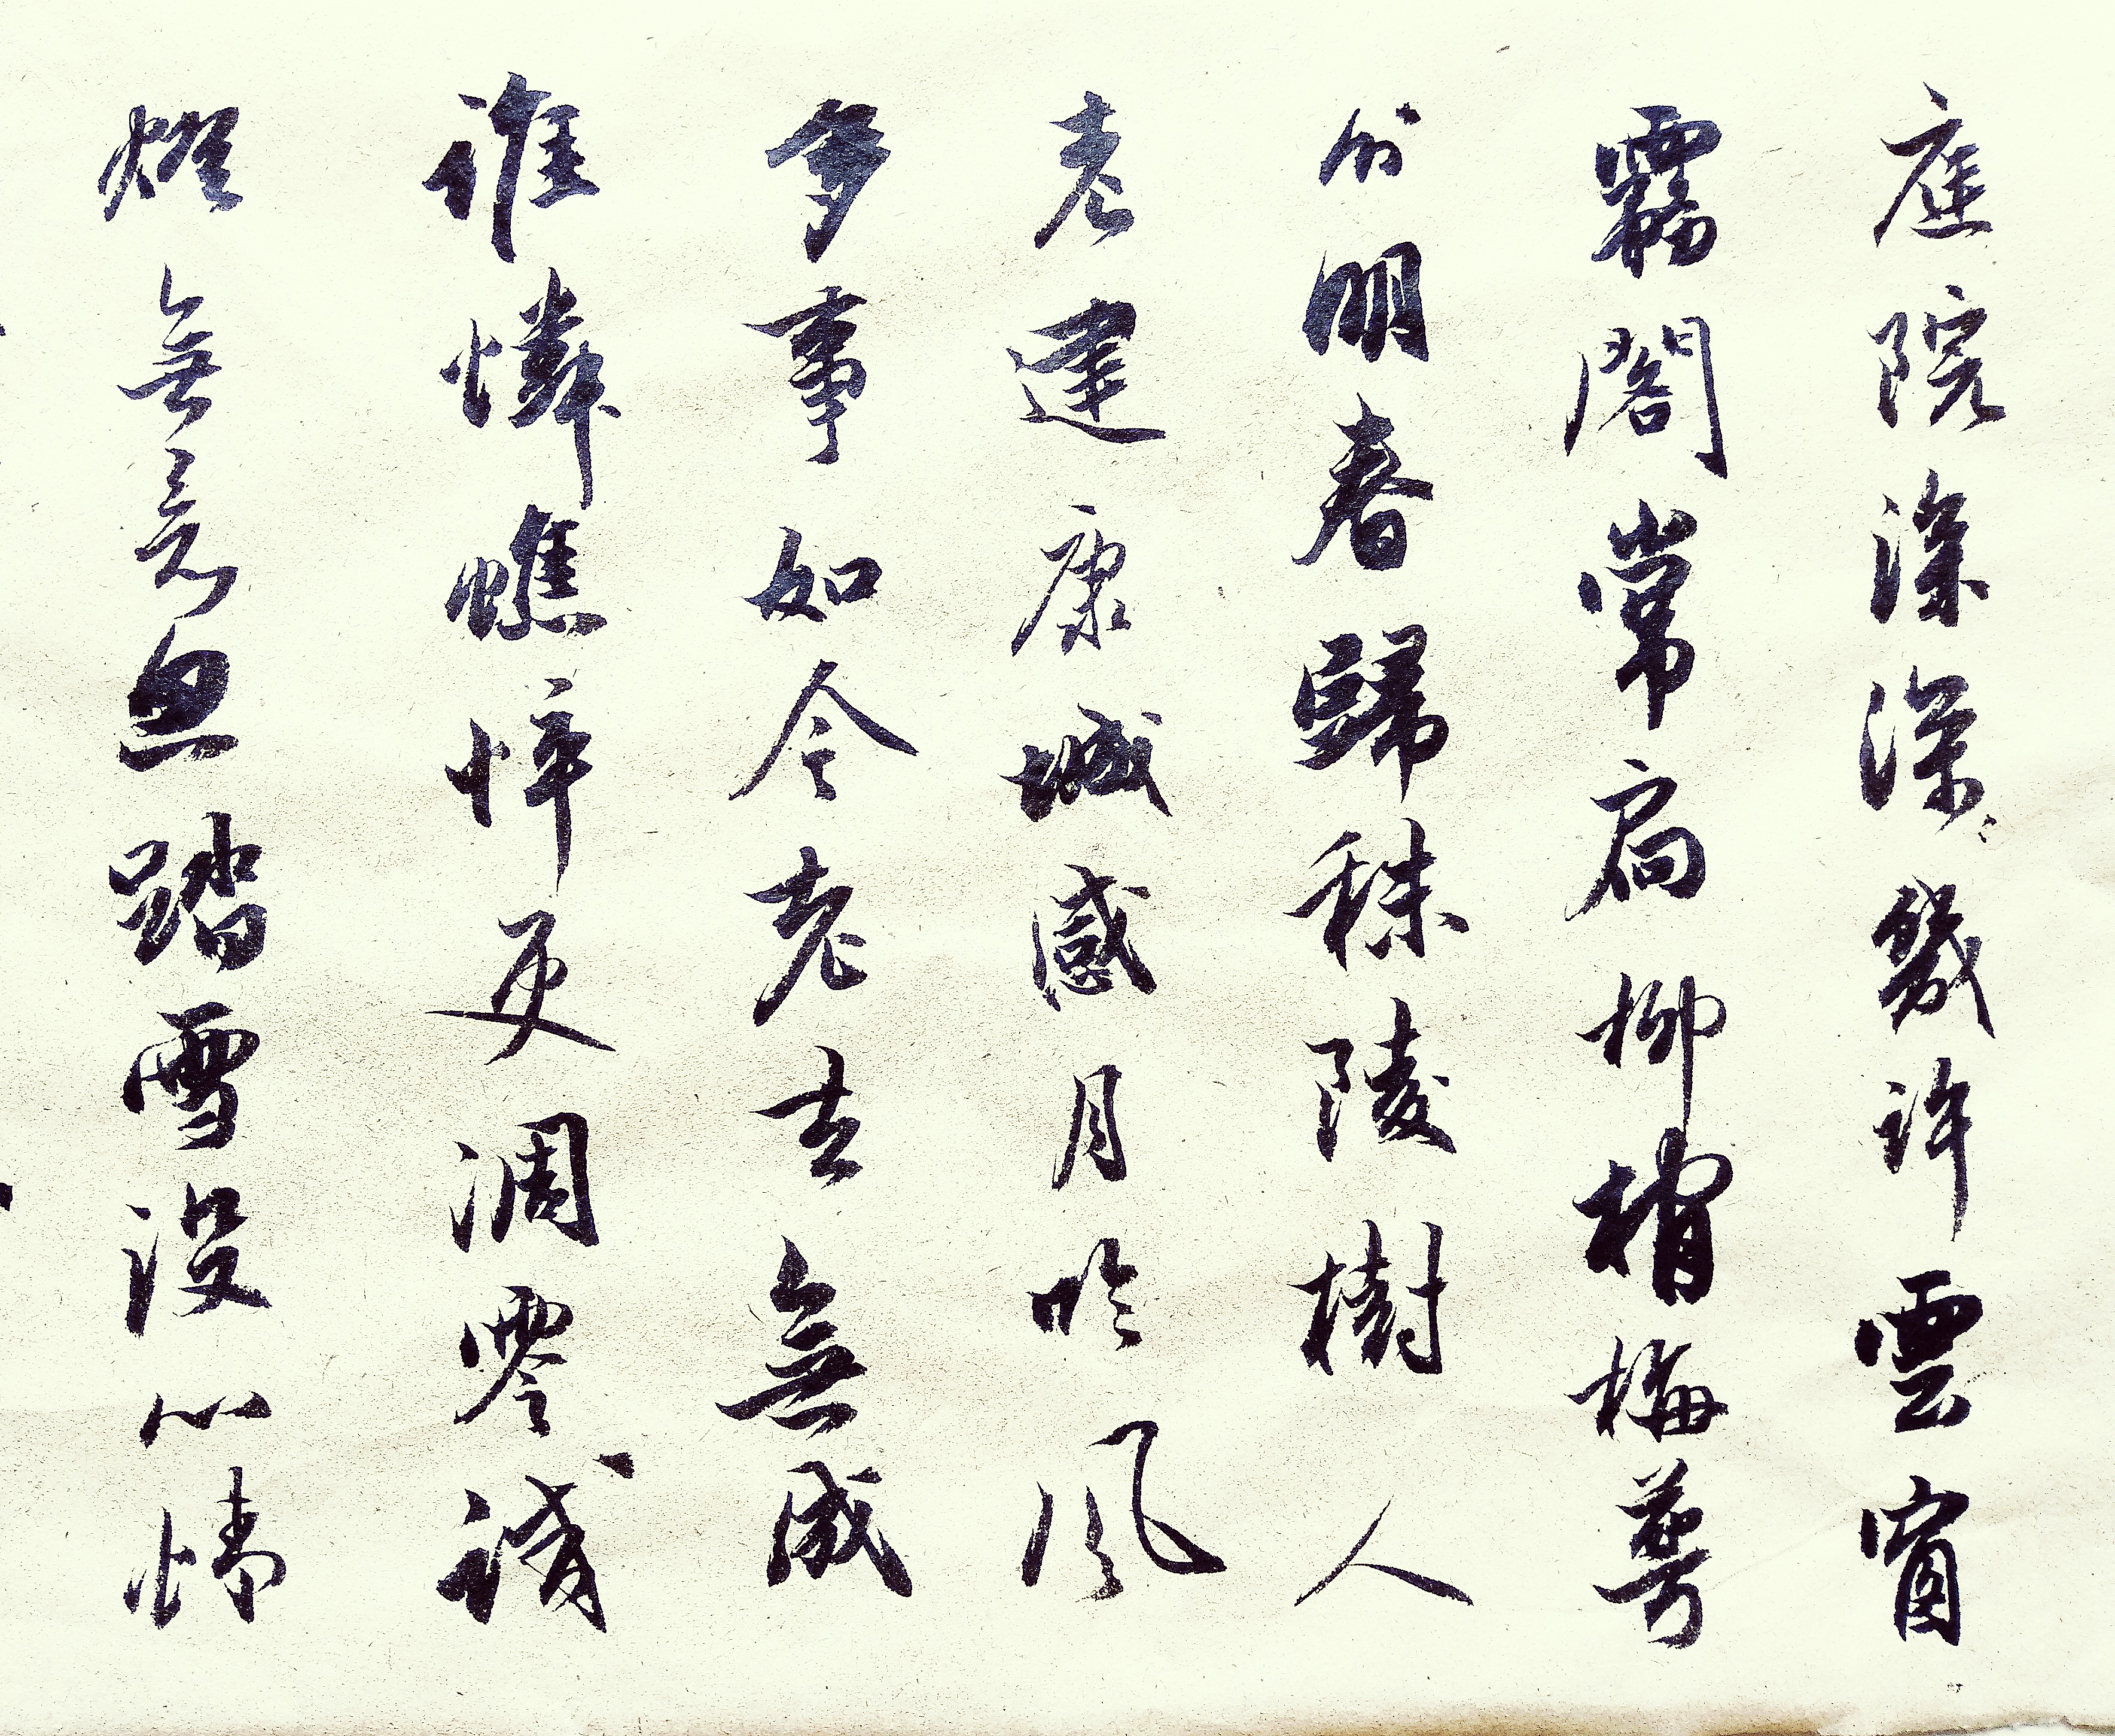 庭院深深〻幾許雲窗
霧閣常扃柳梢梅萼
分明春歸秣陵樹人
老建康城感月吟風
多事如今老去無成
誰憐憔悴更凋零試
燈無意思踏雪沒心情